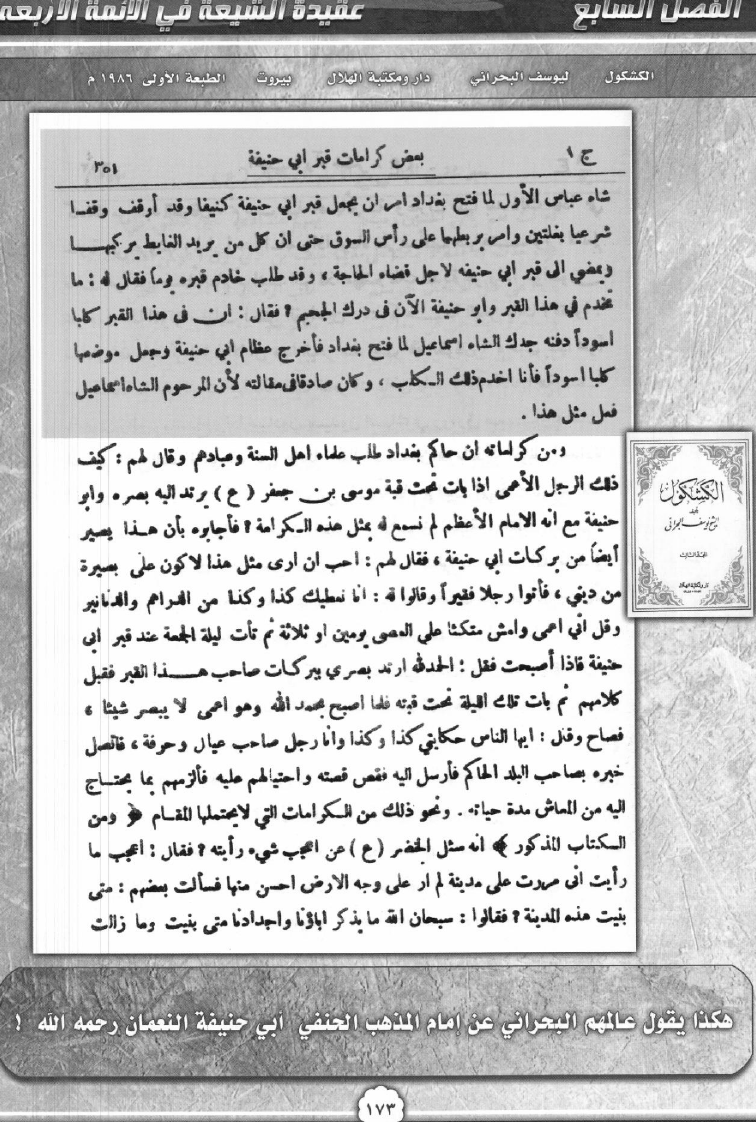 الفصل السابع
عقيدة الشيعة في الأئمة الأربعة
الكشكول ليوسف البحراني دار ومكتبة الهلال بيروت الطبعة الأولى ١٩٨٦ م
ج ١ بعض كرامات قبر ابي حنيفة ٣٥١
شاه عباس الأول لما فتح بغداد امر ان يجعل قبر ابي حنيفة كنيفا وقد أوقف وقفا
شرعيا بغلتين وامر بربطهما على رأس السوق حتى ان كل من يريد الغايط يركبها
ويمضي الى قبر ابي حنيفه لاجل قضاء الحاجة ، وقد طلب خادم قبره يوماً فقال له : ما
تخدم في هذا القبر وابو حنيفة الآن فى درك الجحيم ? فقال : ان فى هذا القبر كلبا
اسوداً دفنه جدك الشاه اسماعيل لما فتح بغداد فأخرج عظام ابي حنيفة وجعل موضعها
كلبا اسوداً فأنا اخدم ذلك الكلب ، وكان صادقا فى مقالته لأن المرحوم الشاه اسماعيل
فعل مثل هذا .
ومن كراماته ان حاكم بغداد طلب علماء اهل السنة وعبادهم وقال لهم : كيف
ذلك الرجل الأعمى اذا بات تحت قبة موسى بن جعفر ( ع ) يرتد اليه بصره وابو
حنيفة مع انه الامام الأعظم لم نسمع له بمثل هذه الكرامة ? فأجابوه بأن هذا يصير
أيضاً من بركات ابي حنيفة ، فقال لهم : احب ان ارى مثل هذا لاكون على بصيرة
من ديني ، فأتوا رجلا فقيراً وقالوا له : انا نعطيك كذا وكذا من الدراهم والدنانير
وقل اني اعمى وامش متكئا على العصى يومين او ثلاثة ثم تأت ليلة الجمعة عند قبر ابي
حنيفة فاذا أصبحت فقل : الحمدلله ارتد بصري ببركات صاحب هذا القبر فقبل
كلامهم ثم بات تلك الليلة تحت قبته فلما اصبح بحمد الله وهو اعمى لا يبصر شيئا ،
فصاح وقال : ايها الناس حكايتي كذا وكذا وانا رجل صاحب عيال وحرفة ، فاتصل
خبره بصاحب البلد الحاكم فأرسل اليه فقص قصته واحتيالهم عليه فألزمهم بما يحتاج
اليه من المعاش مدة حياته . ونحو ذلك من الكرامات التي لايحتملها المقام ﴿ ومن
الكتاب المذكور ﴾ انه سئل الخضر ( ع ) عن اعجب شيء رأيته ? فقال : اعجب ما
رأيت انى مررت على مدينة لم ار على وجه الارض احسن منها فسألت بعضهم : متى
بنيت هذه المدينة ? فقالوا : سبحان الله ما يذكر اباؤنا واجدادنا متى بنيت وما زالت
الكشكول
دار ومكتبة الهلال
هكذا يقول عالمهم البحراني عن امام المذهب الحنفي ابي حنيفة النعمان رحمه الله !
١٧٣